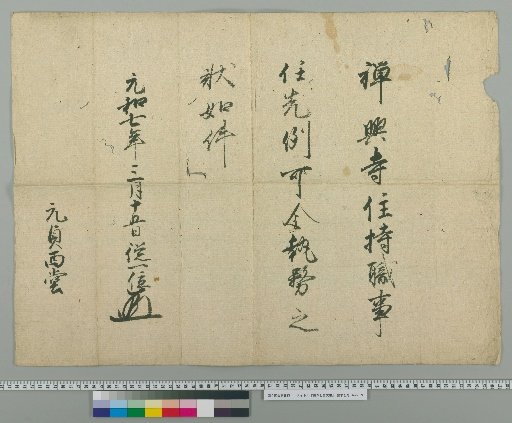 禅興寺住持職事
任先例可令執務之
状如件
元和七年三月十五日従一位
元良西堂